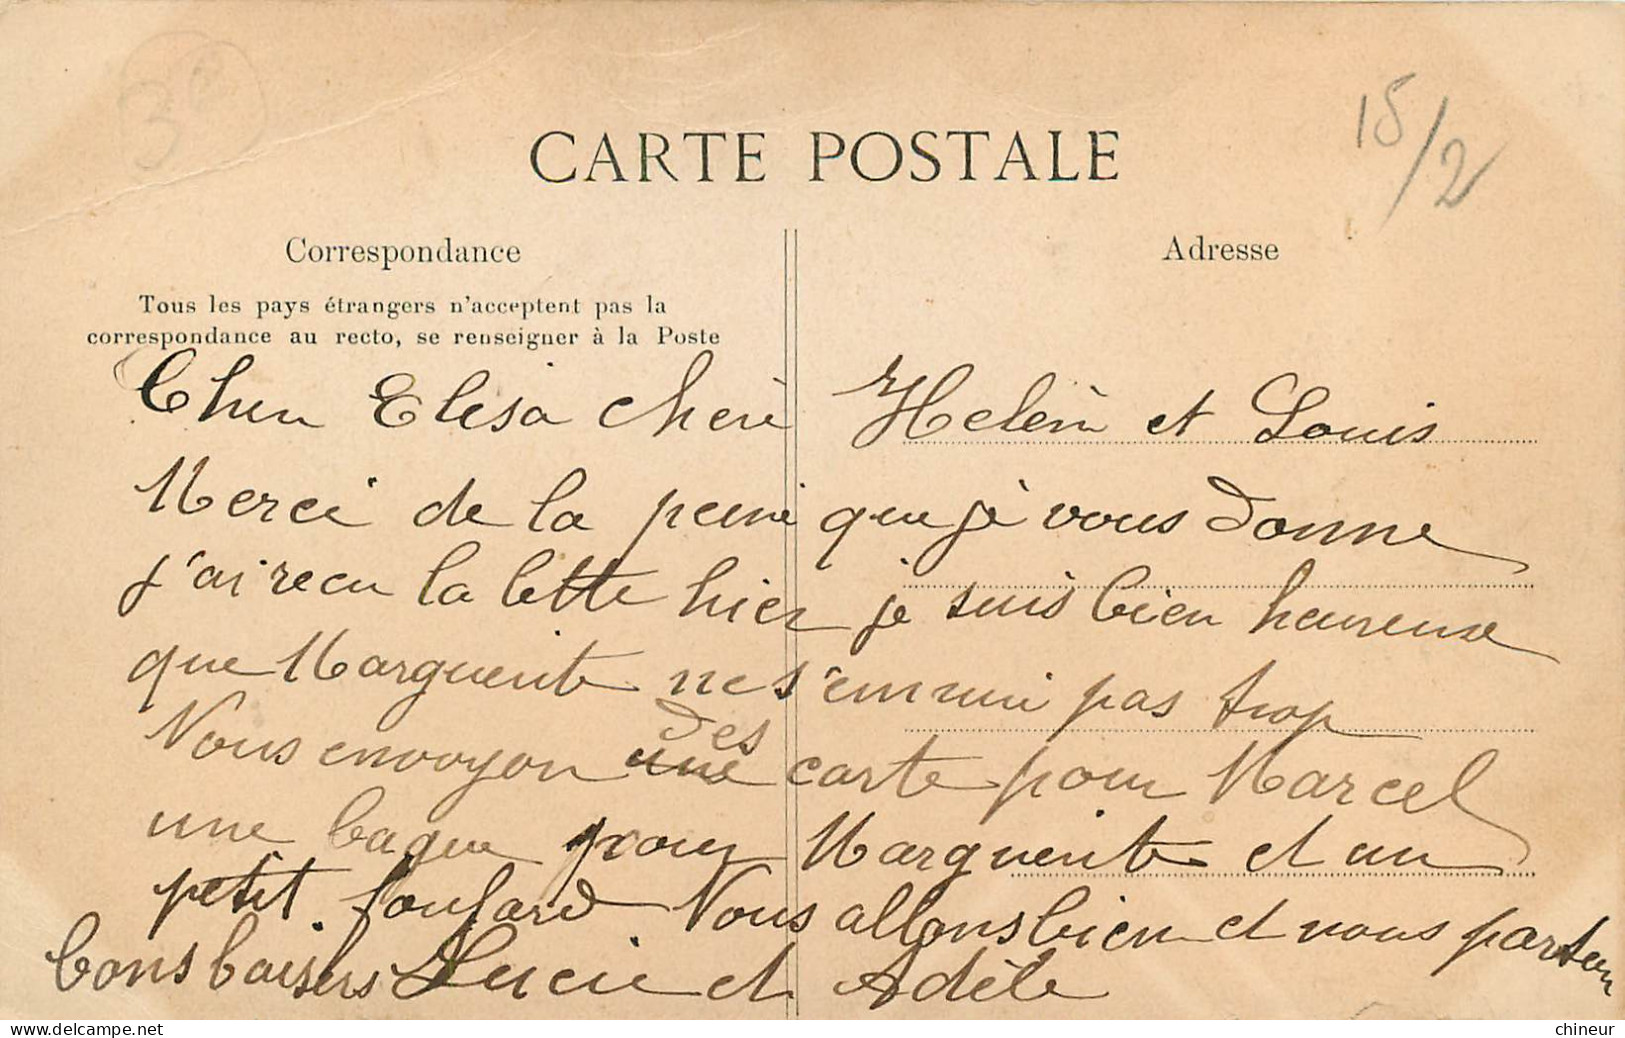 3e
15/2
CARTE POSTALE
Correspondance
Adresse
Tous les pays étrangers n'acceptent pas la
correspondance au recto, se renseigner à la Poste
Cher Elisa chère Helène et Louis
Merci de la peine que je vous donne
j'ai recu la lettre hier je suis bien heureuse
que Marguerite ne s'ennui pas trop
Nous envoyon une des carte pour Marcel
une bague pour Marguerite et un
petit foulard Nous allons bien et nous parton
bons baisers Lucie et Adèle
chineur